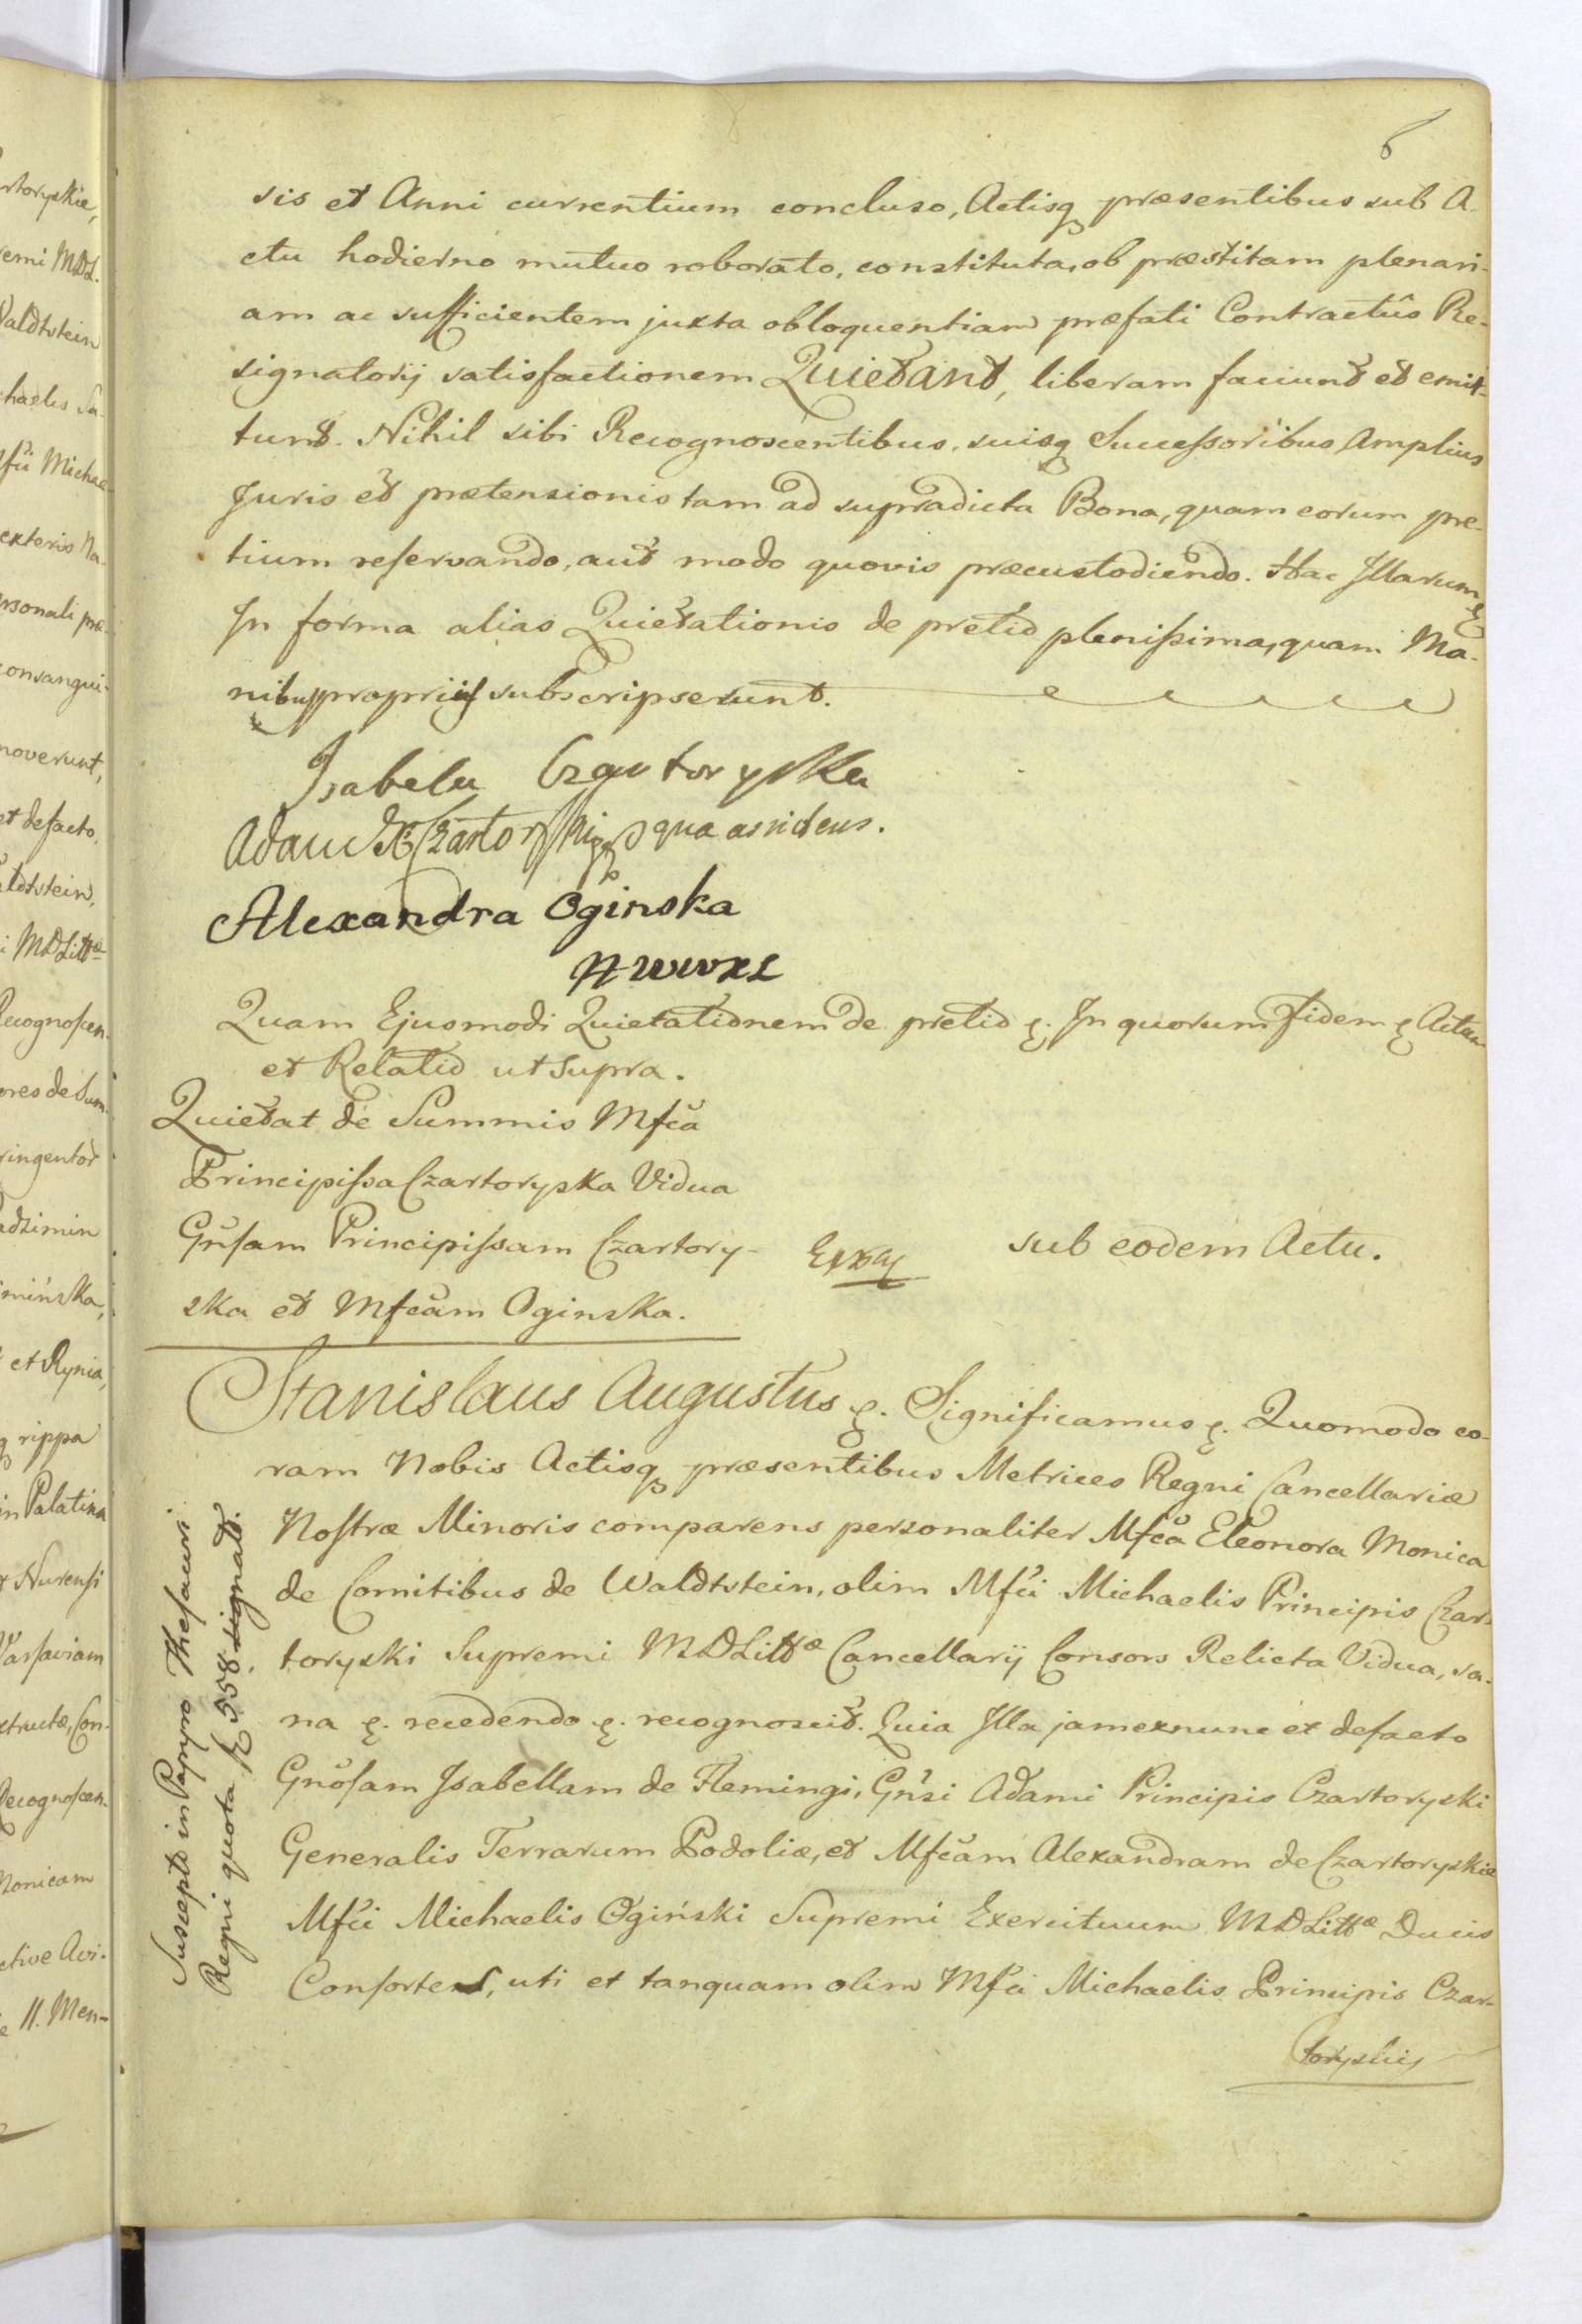 6
sis et Anni currentium concluso, Actisq præsentibus sub A-
ctu hodierno mutuo roborato, constituta, ob præstitam plenari-
am ac sufficientem juxta obloquentiam præfati Contractûs Re-
signatorij satisfactionem Quietant, liberam faciunt et emit-
tunt. Nihil sibi Recognoscentibus, suisq Successoribus Amplius
Juris et prætensionis tam ad supradicta Bona, quam eorum pre-
tium reservando, aut modo quovis præcustodiendo. Hac Illarum
In forma alias Quietationis de pretio plenissima, quam Ma-
nibus proprijs subscripserunt.
Isabela Czartoryska
Adam X Czartoryski qua assidens.
Alexandra Oginska
HWWXL
Quam Ejusmodi Quietationem de pretio ę. In quorum Fidem ę Actum
et Relatio ut supra.
Quietat de Summis Mfca
Principissa Czartoryska Vidua
Gnsam Principissam Czartory-
ska et Mfcam Oginska.
sub eodem Actu.
Stanislaus Augustus ę. Significamus ę. Quomodo co-
ram Nobis Actisq præsentibus Metrices Regni Cancellariæ
Nostræ Minoris comparens personaliter Mfca Eleonora Monica
de Comitibus de Waldtstein, olim Mfci Michaelis Principis Czar-
toryski Supremi MDLittæ Cancellarij Consors Relicta Vidua, sa-
na ę. recedendo ę. recognoscit. Quia Illa jam exnunc et defacto
Gnosam Isabellam de Flemingi, Gnsi Adami Principis Czartoryski
Generalis Terrarum Podoliæ, et Mfcam Alexandram de Czartoryskie
Mfci Michaelis Ogiński Supremi Exercituum MDLittæ Ducis
Consortes, uti et tanquam olim Mfci Michaelis Principis Czar-
toryskij
Suscepta in Papyro Thesauri
Regni quota fl 558 signato.